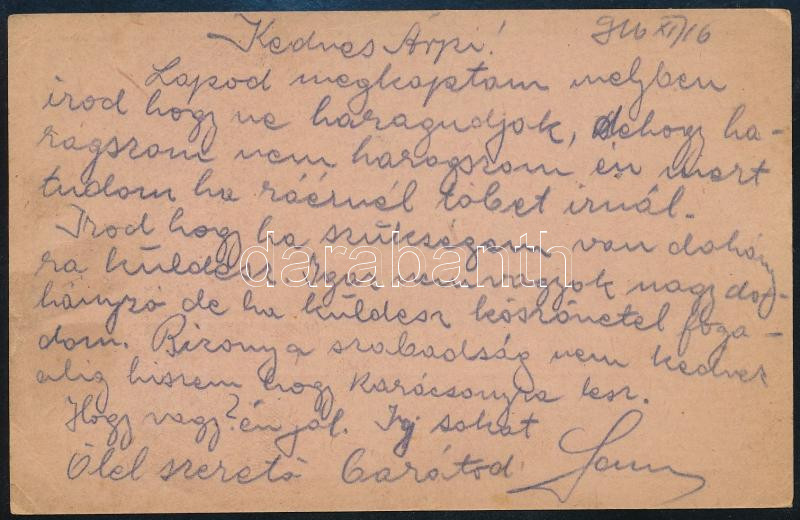 Kedves Árpi! 916 XI/16
Lapod megkaptam melyben
irod hogy ne haragudjak, dehogy ha-
ragszom nem haragszom én mert
tudom ha ráérnél töbet irnál.
Irod hogy ha szükségem van dohány
ra küldesz. Igaz nem vagyok nagy do-
hányzó de ha küldesz köszönetel foga-
dom. Bizony a szabadság nem kedvez
alig hiszem hogy karácsonyra lesz.
Hogy vagy? én jól. Irj sokat
Ölel szerető barátod
darabanth